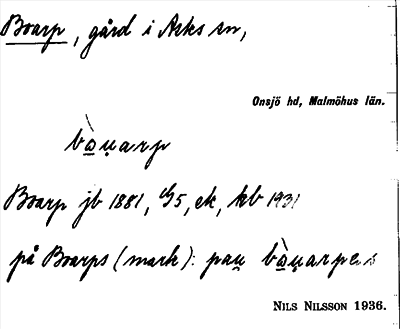 Boarp, gård i Asks sn,
Onsjö hd, Malmöhus län.
bòu̯arp
Boarp jb 1881, G5, ek, kb 1931
på Boarps (mark): pau̯ bòu̯arps
NILS NILSSON 1936.